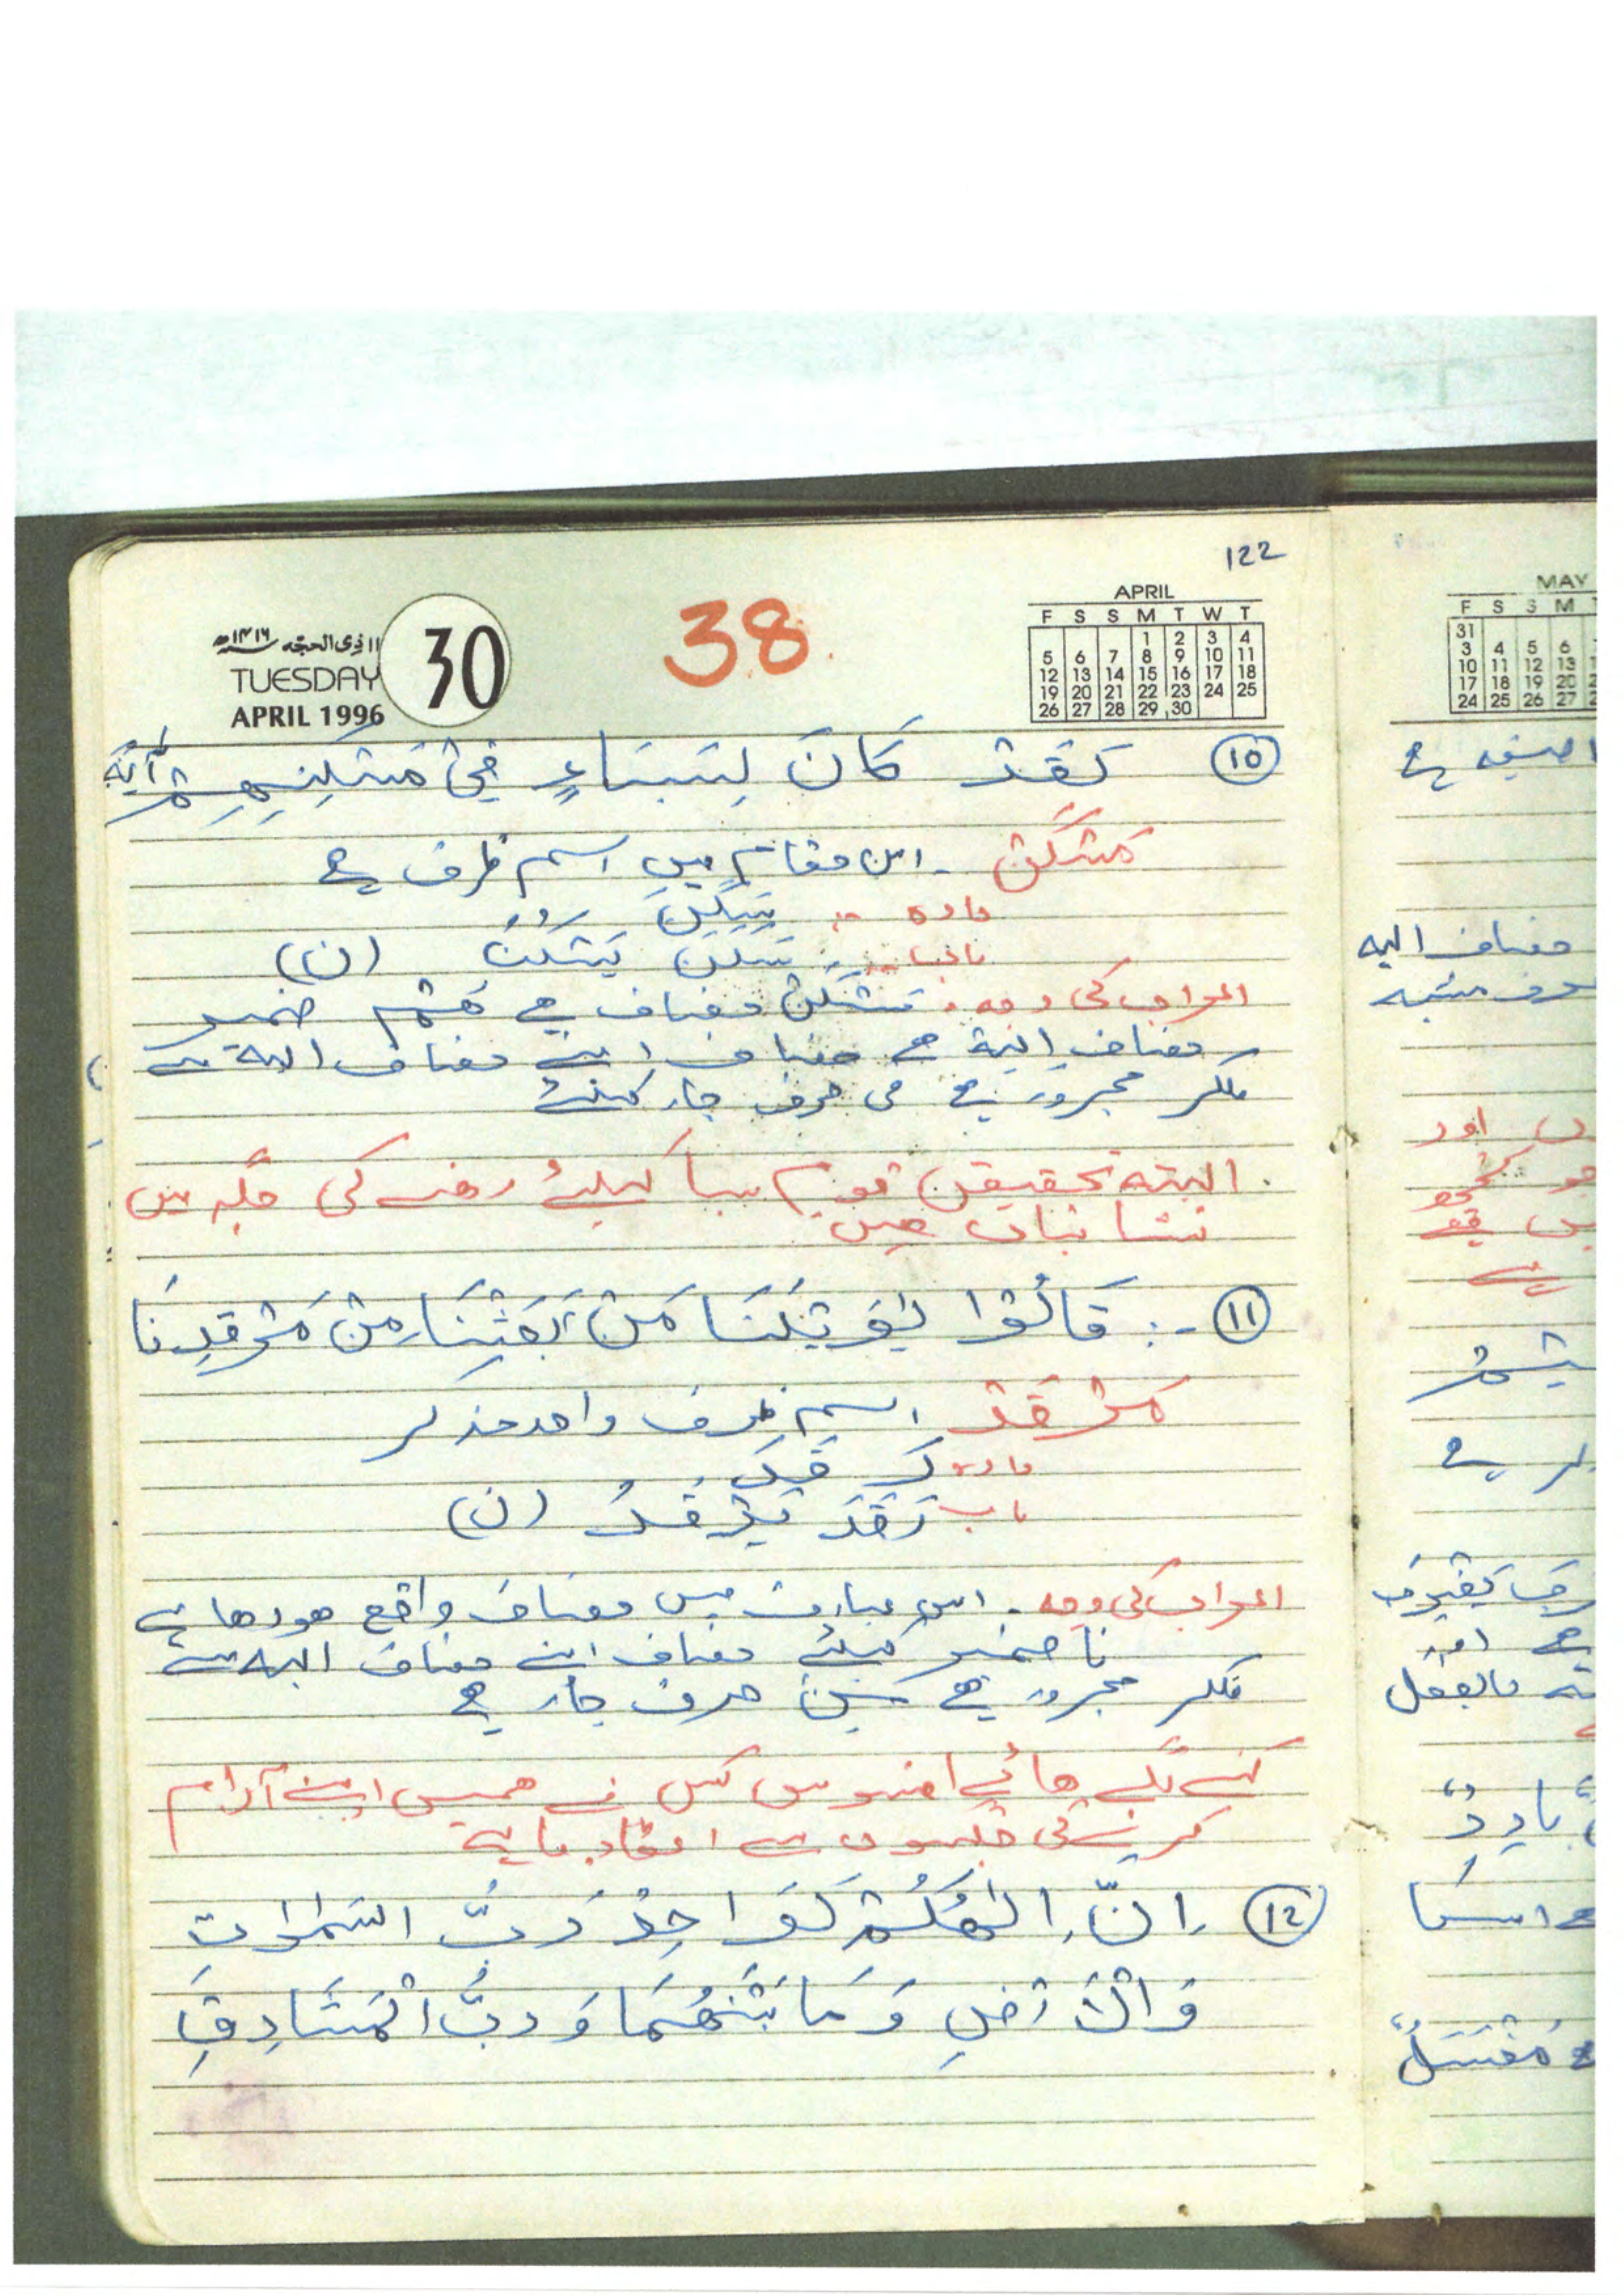 122
۱۱ ذی الحجہ ۱۴۱۶ھ
TUESDAY
APRIL 1996
30
38
APRIL
F S S M T W T
1 2 3 4
5 6 7 8 9 10 11
12 13 14 15 16 17 18
19 20 21 22 23 24 25
26 27 28 29 30
⑩ لَقَدْ كَانَ لِسَبَاءٍ فِيْ مَسْكَنِهِمْ آيَةٌ
مَسْكَنْ ۔ اس مقام میں اسم ظرف ہے
مادہ :- سَكَنَ
باب :- سَكَنَ يَسْكُنُ (ن)
اعراب کی وجہ ۔ مَسْكَنْ مضاف ہے هُمْ ضمیر
مضاف الیہ ہے مضاف اپنے مضاف الیہ سے
ملکر مجرور ہے فی حرف جار کیلئے
البتہ تحقیق قوم سبا کیلئے رہنے کی جگہ میں
نشانیاں ہیں
⑪ :- قَالُوْا يٰوَيْلَنَا مَنْ بَعَثَنَا مِنْ مَرْقَدِنَا
مَرْقَدْ اسم ظرف واحد مذکر
مادہ رَ قَ دَ
باب رَقَدَ يَرْقُدُ (ن)
اعراب کی وجہ ۔ اس عبارت میں مضاف واقع ہورہا ہے
نا ضمیر کیلئے مضاف اپنے مضاف الیہ سے
ملکر مجرور ہے مِنْ حرف جار ہے
کہنے لگے ہائے افسوس کس نے ہمیں اپنے آرام
کرنے کی جگہوں سے اٹھادیا ہے
⑫ اِنَّ اِلٰهَكُمْ لَوَاحِدٌ رَبُّ السَّمٰوٰتِ
وَالْاَرْضِ وَمَا بَيْنَهُمَا وَرَبُّ الْمَشَارِقِ
MAY
F S S M
31
3 4 5 6
10 11 12 13
17 18 19 20
24 25 26 27
ہے
مضاف الیہ
اور
جو
ہے
بالفعل